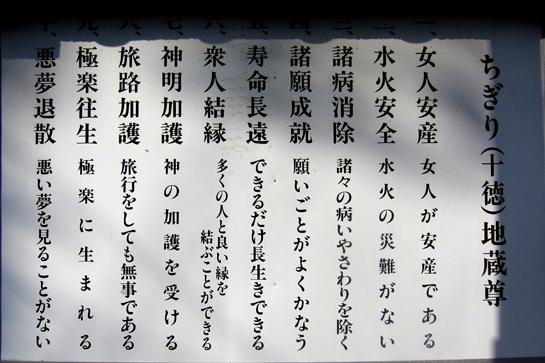 ちぎり(十徳)地蔵尊
一、女人安産 女人が安産である
二、水火安全 水火の災難がない
三、諸病消除 諸々の病いやさわりを除く
四、諸願成就 願いごとがよくかなう
五、寿命長遠 できるだけ長生きできる
六、衆人結縁 多くの人と良い縁を
結ぶことができる
七、神明加護 神の加護を受ける
八、旅路加護 旅行をしても無事である
九、極楽往生 極楽に生まれる
十、悪夢退散 悪い夢を見ることがない